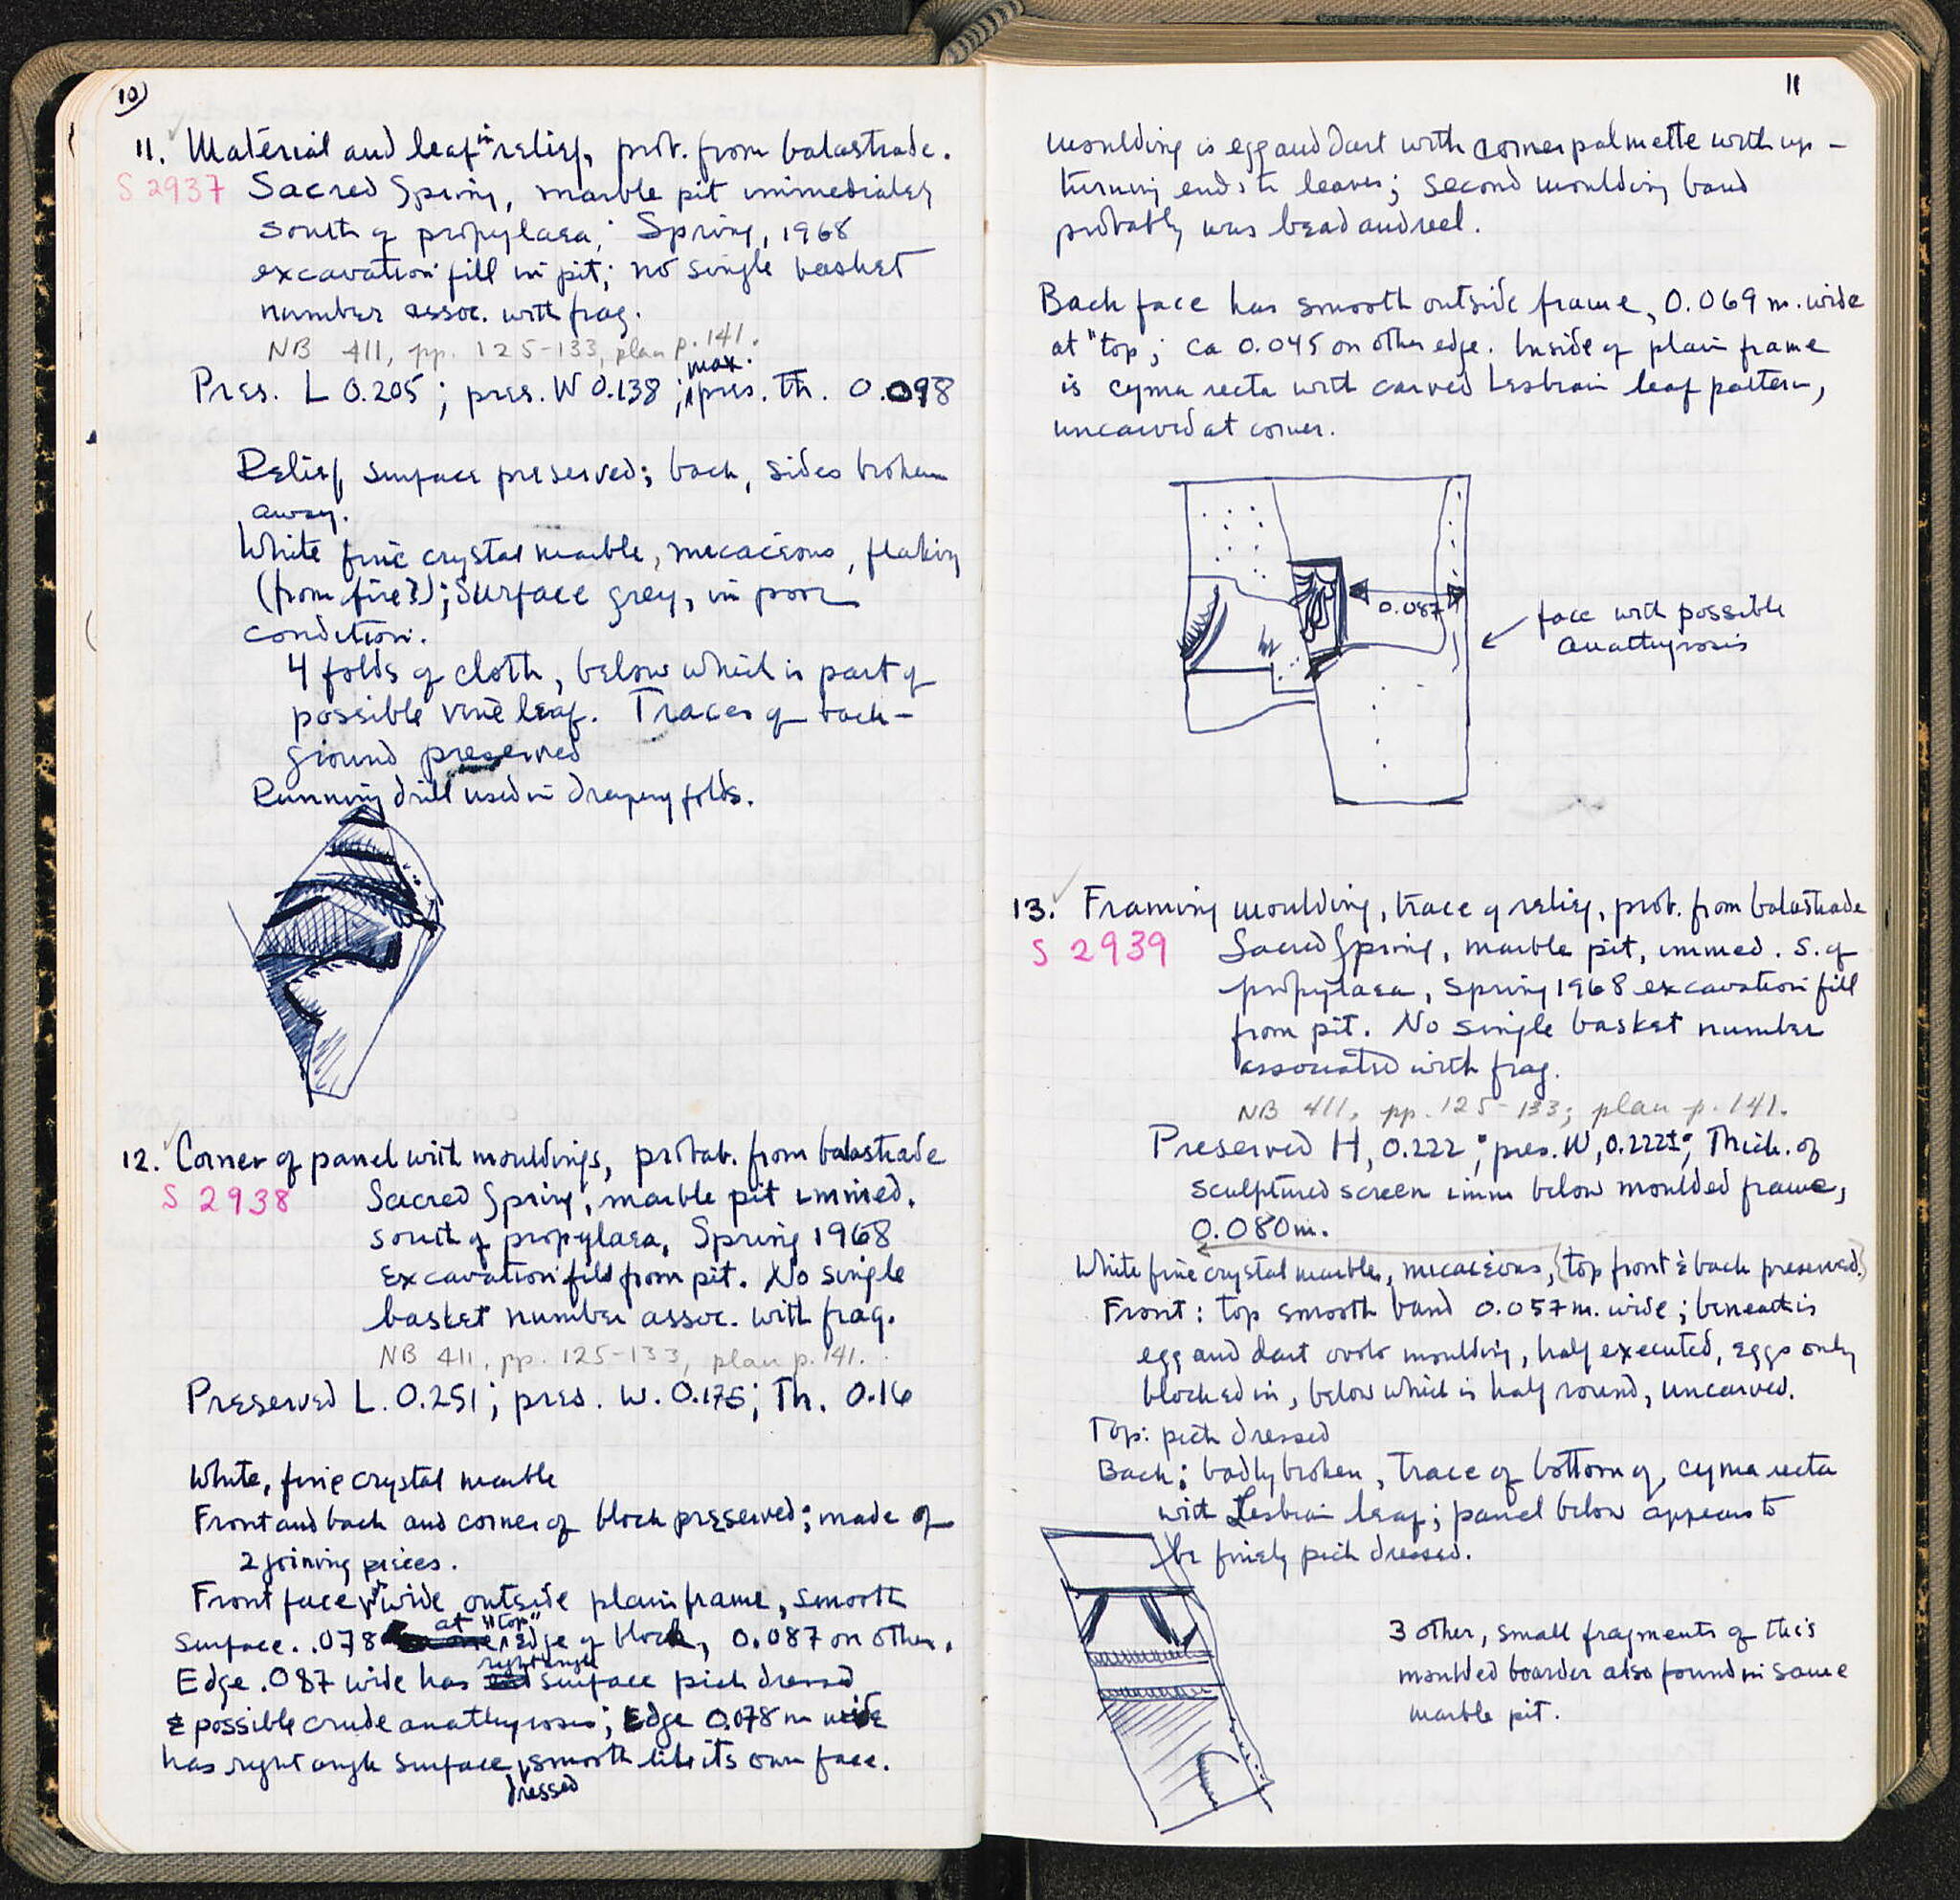 10
11. Material and leaf in relief, prob. from balastrade.
S 2937 Sacred Spring, marble pit immediately
south of propylaea; Spring, 1968
excavation fill in pit; no single basket
number assoc. with frag.
NB 411, pp. 125-133, plan p. 141.
Pres. L 0.205; pres. W 0.138; max. pres. Th. 0.098
Relief surface preserved; back, sides broken
away.
White fine crystal marble, micaceous, flaking
(from fire?); surface grey, in poor
condition.
4 folds of cloth, below which is part of
possible vine leaf. Traces of back-
ground preserved
Running drill used in drapery folds.
12. Corner of panel with mouldings, probab. from balastrade
S 2938 Sacred Spring, marble pit immed.
south of propylaea, Spring 1968
excavation fill from pit. No single
basket number assoc. with frag.
NB 411, pp. 125-133, plan p. 141.
Preserved L. 0.251; pres. W. 0.175; Th. 0.16
White, fine crystal marble
Front and back and corner of block preserved; made of
2 joining pieces.
Front face wide outside plain frame, smooth
surface. .078 at "top" edge of block, 0.087 on other.
Edge .087 wide has right angle surface pick dressed
& possible crude anathyrosis; Edge 0.078 m wide
has right angle surface, dressed smooth like its own face.
11
moulding is egg and dart with corner palmette with up-
turning ends to leaves; second moulding band
probably was bead and reel.
Back face has smooth outside frame, 0.069 m. wide
at "top; ca 0.045 on other edge. Inside of plain frame
is cyma recta with carved Lesbian leaf pattern,
uncarved at corner.
0.087
face with possible
anathyrosis
13. Framing moulding, trace of relief, prob. from balastrade
S 2939 Sacred Spring, marble pit, immed. S. of
propylaea, Spring 1968 excavation fill
from pit. No single basket number
associated with frag.
NB 411, pp. 125-133; plan p. 141.
Preserved H, 0.222; pres. W, 0.222±; Thick. of
sculptured screen imm below moulded frame,
0.080m.
White fine crystal marble, micaceous, {top front & back preserved.}
Front: top smooth band 0.057 m. wide; beneath is
egg and dart ovolo moulding, half executed, eggs only
blocked in, below which is half round, uncarved.
Top: pick dressed
Back: badly broken, trace of bottom of, cyma recta
with Lesbian leaf; panel below appears to
be finely pick dressed.
3 other, small fragments of this
moulded boarder also found in same
marble pit.